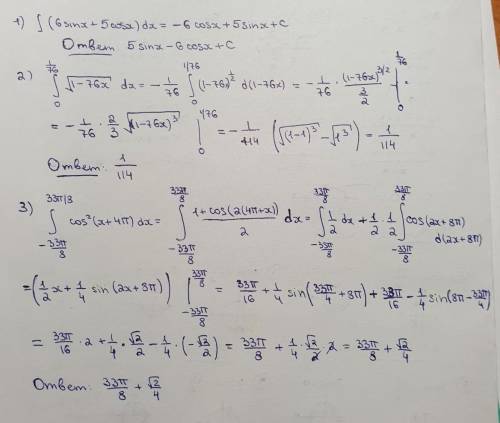 1) ∫(6sinx+5cosx)dx = -6cosx+5sinx+C
Ответ 5sinx-6cosx+C
2) ∫₀^{1/76} √(1-76x) dx = -1/76 ∫₀^{1/76} (1-76x)^{1/2} d(1-76x) = -1/76 · (1-76x)^{3/2} / (3/2) |₀^{1/76} =
= -1/76 · 2/3 √(1-76x)³ |₀^{1/76} = -1/114 (√(1-1)³ - √1³) = 1/114
Ответ: 1/114
3) ∫_{-33π/8}^{33π/8} cos²(x+4π)dx = ∫_{-33π/8}^{33π/8} (1+cos(2(4π+x)))/2 dx = ∫_{-33π/8}^{33π/8} 1/2 dx + 1/2 · 1/2 ∫_{-33π/8}^{33π/8} cos(2x+8π) d(2x+8π)
= (1/2 x + 1/4 sin(2x+8π)) |_{-33π/8}^{33π/8} = 33π/16 + 1/4 sin(33π/4 + 8π) + 33π/16 - 1/4 sin(8π - 33π/4)
= 33π/16 · 2 + 1/4 · √2/2 - 1/4 · (-√2/2) = 33π/8 + 1/4 · √2/2 · 2 = 33π/8 + √2/4
Ответ: 33π/8 + √2/4